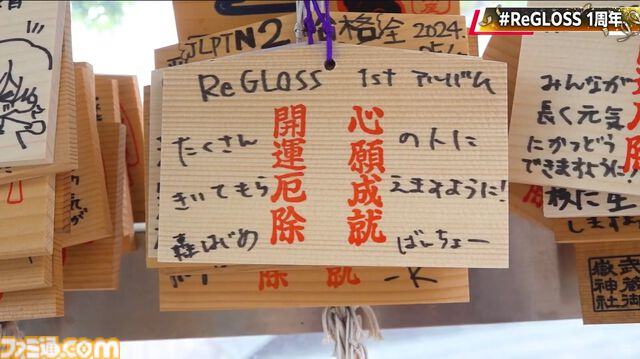 #ReGLOSS 1周年
JLPTN2 合格 2024.
ReGLOSS 1stアルバム
たくさんの人に
きいてもらえますように!
轟はじめ ばんちょー
心願成就
開運厄除
除 就
ーK
みんなが
長く元気
にかつどう
できますように!
します
武蔵御
嶽神社
ファミ通.com